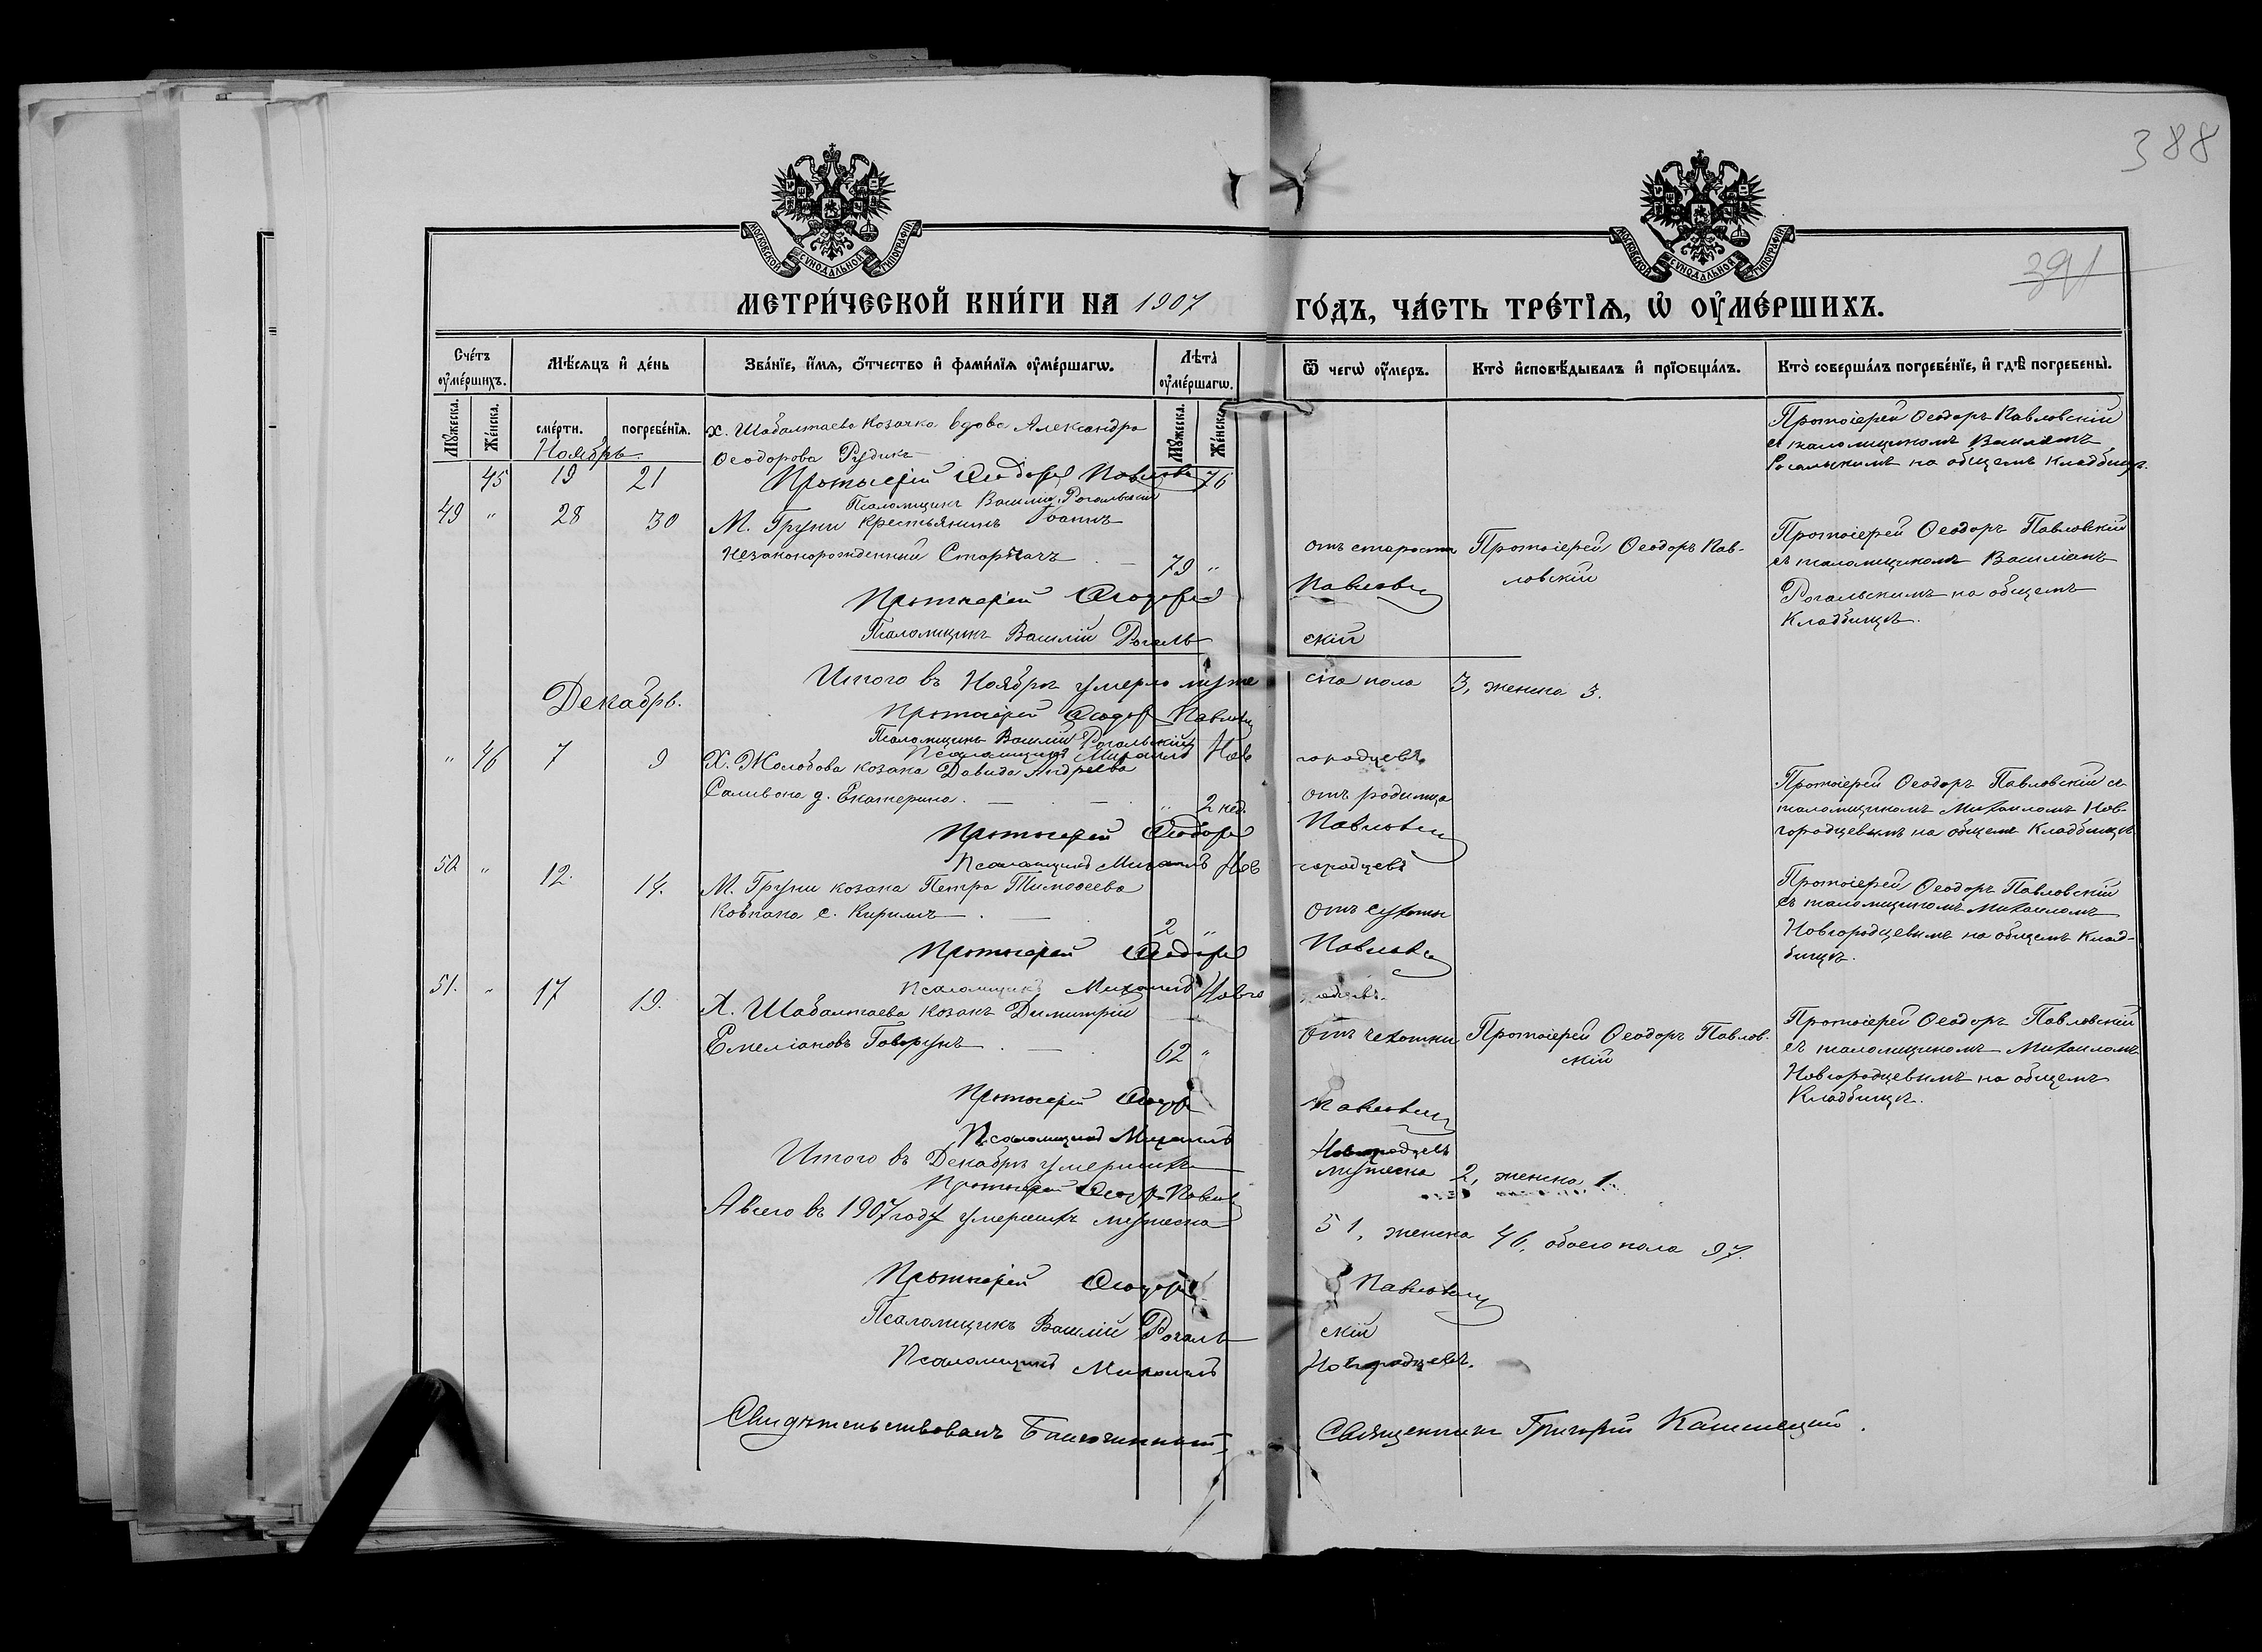 388
391
МОСКОВСКОЙ СѴНОДАЛЬНОЙ ТИПОГРАФІИ
МОСКОВСКОЙ СѴНОДАЛЬНОЙ ТИПОГРАФІИ
МЕТРИ́ЧЕСКОЙ КНИ́ГИ НА 1907 ГО́ДЪ, ЧА́СТЬ ТРЕ́ТІѦ, Ѡ҆ ОУ҆МЕ́РШИХЪ.
Сче́тъ оу҆ме́ршихъ.
Мѣ́сѧцъ и҆ де́нь
Зва́нїе, и҆́мѧ, ѻ҆́тчество и҆ фами́лїѧ оу҆ме́ршагѡ.
Лѣта̀ оу҆ме́ршагѡ.
Ѿ чегѡ̀ оу҆́меръ.
Кто̀ и҆сповѣ́дывалъ и҆ прїѻбща́лъ.
Кто̀ соверша́лъ погребе́нїе, и҆ гдѣ̀ погребены̀.
Мꙋ́жеска.
Же́нска.
сме́рти.
погребе́нїѧ.
Мꙋ́жеска.
Же́нска.
Ноябрь
х. Шабалтаева козачка вдова Александра
Ѳеодорова Рудикъ
45 19 21 76
Протоіерей Ѳеодоръ Павлов
Псаломщикъ Василій Рогальскій
Протоіерей Ѳеодоръ Павловскій
съ псаломщикомъ Василіемъ
Рогальскимъ на общемъ кладбищѣ.
49 " 28 30 М. Груни крестьянинъ Іоаннъ
незаконорожденный 79 "
отъ старости Протоіерей Ѳеодоръ Павловскій
Протоіерей Ѳеодоръ Павловскій
съ псаломщикомъ Василіемъ
Рогальскимъ на общемъ
Кладбищѣ.
Протоіерей Ѳеодоръ Павлов
Псаломщикъ Василій Рогальскій
Итого въ Ноябрѣ умерло мужескаго пола 3, женска 3.
Декабрь.
Протоіерей Ѳеодоръ Павлов
Псаломщикъ Василій Рогальскій
Псаломщикъ Михаилъ Новгородцевъ
" 46 7 9 Х. Жолобова козака Давида Андреева
Саливона д. Екатерина. " 2 нед. отъ родимца
Протоіерей Ѳеодоръ Павловскій съ
псаломщикомъ Михаиломъ Новгородцевымъ на общемъ Кладбищѣ
Протоіерей Ѳеодоръ Павлов
Псаломщикъ Михаилъ Новгородцевъ
50 " 12. 14. М. Груни козака Петра Тимоѳеева
Ковпака с. Кириллъ. 2 " Отъ сухоты
Протоіерей Ѳеодоръ Павловскій
съ псаломщикомъ Михаиломъ
Новгородцевымъ на общемъ Кладбищѣ.
Протоіерей Ѳеодоръ Павлов
Псаломщикъ Михаилъ Новгородцевъ.
51. " 17 19. Х. Шабалтаева козакъ Димитрій
Емеліановъ Говорунъ. 62 " Отъ чехотки Протоіерей Ѳеодоръ Павловскій
Протоіерей Ѳеодоръ Павловскій
съ псаломщикомъ Михаиломъ
Новгородцевымъ на общемъ
Кладбищѣ.
Протоіерей Ѳеодоръ Павлов
Псаломщикъ Михаилъ Новгородцевъ
Итого въ Декабрѣ умершихъ мужеска 2, женска 1.
Протоіерей Ѳеодоръ Павлов
А всего въ 1907 году умершихъ мужеска 51, женска 46, обоего пола 97.
Протоіерей Ѳеодоръ Павлов
Псаломщикъ Василій Рогальскій
Псаломщикъ Михаилъ Новгородцевъ.
Свидѣтельствовалъ Благочинный, Священникъ Григорій